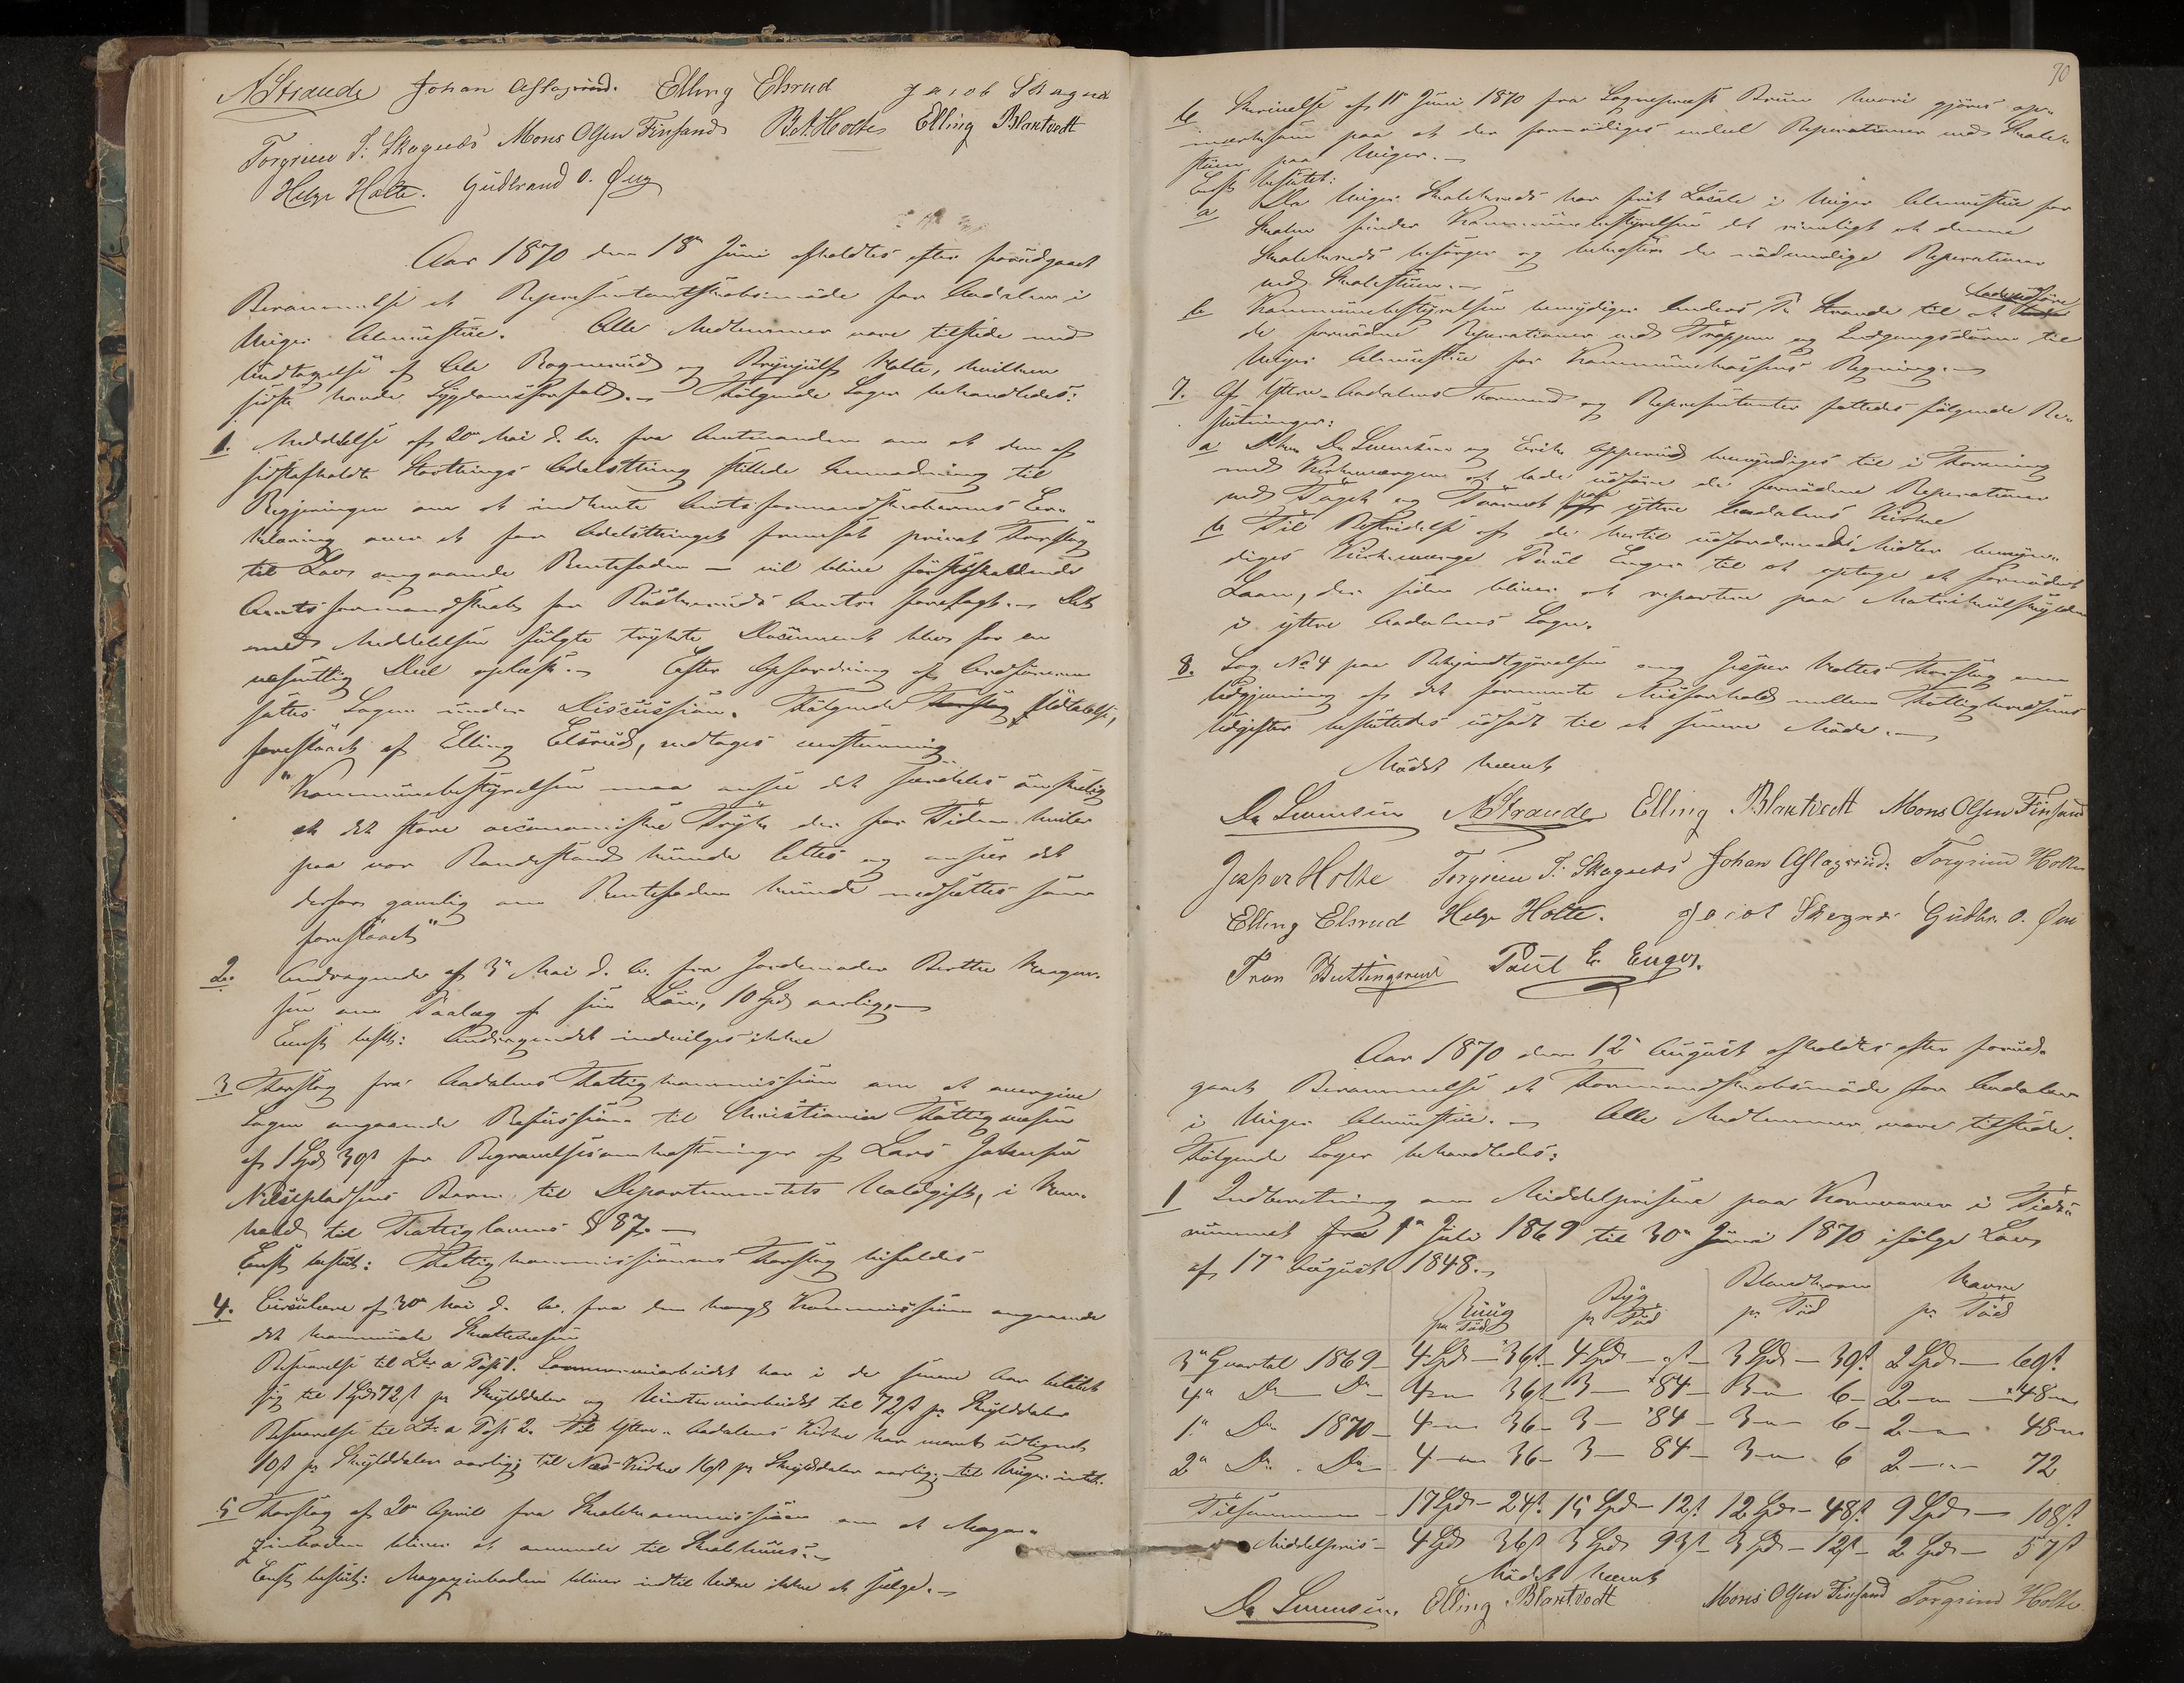 AStrande Johan Aslagsrud. Elling Elsrud Jacob Skagnæs
Torgrim T. Skagnæs Mons Olsen Finsand B. A. Holte Elling Blaktvedt
Helge Holte. Gudbrand O. Øen
Aar 1870 den 18de Juni afholdtes efter forudgaaet
Berammelse et Repræsentantskabsmøde for Aadalen i
Viger Almuestue. Alle Medlemmer vare tilstede med
Undtagelse af Ole Rognerud og Brynjulf Holte, hvilken
sidste havde Sygdomsforfald. – Følgende Sager behandledes:
1. Meddelelse af 20de Mai d. A. fra Amtmanden om at den af
sidstafholdte Storthings Odelsthing stillede Anmodning til
Regjeringen om at indhente Amtsformandskabernes Er-
klæring over et for Odelsthinget fremsat privat Forslag
til Lov angaaende Rentefoden – vil blive førstafholdende
Amtsformandskab for Buskeruds Amt forelagt. – Det
med Meddelelsen fulgte trykte Document blev for en
væsentlig Deel oplæst. – Efter Opfordring af Ordføreren
sattes Sagen under Discussion. Følgende Forslag Udtalelse,
foreslaaet af Elling Elsrud, vedtoges eenstemmig
"Kommunebestyrelsen maa ansee det særdeles ønskelig
at det store oeconomiske Tryk der for Tiden hviler
paa vor Bondestand kunde lettes og ansees det
derfor gavnlig om Rentefoden kunde nedsættes som
foreslaaet"
2. Andragende af 3de Mai d. A. fra Jordemoder Berthe
om Paalæg af sin Løn, 10 Spd aarlig. –
Eenst. besl: Andragendet indvilges ikke
3 Forslag fra Aadalens Fattigkommission om at overgive
Sagen angaaende Refusion til Christiania Fattigvæsen
af 1 Spd 30 s for Begravelsesomkostninger af Lars Johnsen
Nilsepladsens Barn til Departementets Voldgift, i Hen-
hold til Fattiglovens § 87. –
Eenst. beslut: Fattigkommissionens Forslag bifaldes
4. Circulære af 30te Mai d. A. fra den kongl. Kommission angaaende
det kommunale Skattevæsen
Besvarelse til Litr a Post 1. Sommerveiarbeidet har i de senere Aar beløbet
sig til 1 Spd 72 s pr Skylddaler og Vinterveiarbeidet til 72 s pr. Skylddaler
Besvarelse til Litr a Post 2. Til Ytre Aadalens Kirke har været udlignet
10 s pr Skylddaler aarlig; til Næs Kirke 16 s pr Skylddaler aarlig; til Viger intet.
5 Forslag af 20de April fra Skolekommissionen om at Maga-
zinboden bliver at anvende til Skolehuus. –
Eenst. beslut: Magazinboden bliver indtil Videre ikke at sælge. –
70
6 Skrivelse af 15de Juni 1870 fra Sognepræst Bruun hvori gjøres op-
mærksom paa at der fornødiges endeel Reparationer ved Skole-
stuen paa Viger. –
Eenst. besluttet:
a Da Viger Skolekreds har frit Locale i Viger Almuestue for
Skolen finder Kommunebestyrelsen det rimeligt at denne
Skolekreds besørger og bekoster de nødvendige Reparationer
ved Skolestuen. –
b Kommunebestyrelsen bemyndiger Anders P. Strande til at lade udføre
de fornødne Reparationer ved Trappen og Indgangsdøren til
Viger Almuestue for Kommunekassens Regning. –
7. Af Ytre Aadalens Formænd og Repræsentanter fattedes følgende Be-
slutninger:
a Dhrr Ds Sørensen og Erik Opperud bemyndiges til i Forening
med Kirkeværgen at lade udføre de fornødne Reparationer
ved Taget og Taarnet paa ytre Aadalens Kirke
b Til Bestridelse af de hertil udfordrende Midler bemyn-
diges Kirkeværge Paul Enger til at optage et fornødent
Laan, der siden bliver at repartere paa Matrikulskylden
i ytre Aadalens Sogn.
8. Sag No 4 paa Bekjendtgjørelsen ang Jesper Holtes Forslag om
Udgivning af det formeente Misforhold mellem Fattigkredsenes
Udgifter besluttedes udsat til et senere Møde. –
Mødet hævet
Ds Sørensen AStrande Elling Blaktvedt Mons Olsen Finsand
Jesper Holte Torgrim T. Skagnæs Johan Aslagsrud. Torgrim Holte
Elling Elsrud Helge Holte. Jacob Skagnæs Gudbr. O. Øen
Iver Buttingsrud Paul E Enger.
Aar 1870 den 12te August afholdtes efter forud-
gaaet Berammelse et Formandskabsmøde for Aadalen
i Viger Almuestue. – Alle Medlemmer vare tilstede.
Følgende Sager behandledes:
1 Indberetning om Middelprisene paa Kornvarer i Tids-
rummet fra 1ste Juli 1869 til 30te Juni 1870 ifølge Lov
af 17de August 1848. –
Ruug pr Tød Byg pr Tød Blandkorn pr Tød Havre pr Tød
3de Qvartal 1869 – 4 Spd – 36 s – 4 Spd – " s – 3 Spd – 30 s 2 Spd – 60 s
4de Do Do 4 – " 36 s 3 – 84 – 3 – " 6 – 2 – " – 48 –
1ste Do 1870 – 4 – " 36 – 3 – 84 – 3 – " – 6 – 2 – " 48 –
2de Do Do 4 – " 36 – 3 – 84 – 3 – " 6 2 – " – 72
Tilsammen – 17 Spd – 24 s 15 Spd – 12 s 12 Spd – 48 s 9 Spd – 108 s
Middelpris – 4 Spd 36 s 3 Spd 93 s – 3 Spd – 12 s – 2 Spd – 57 s
Mødet hævet
Ds Sørensen. Elling Blaktvedt Mons Olsen Finsand Torgrim Holte